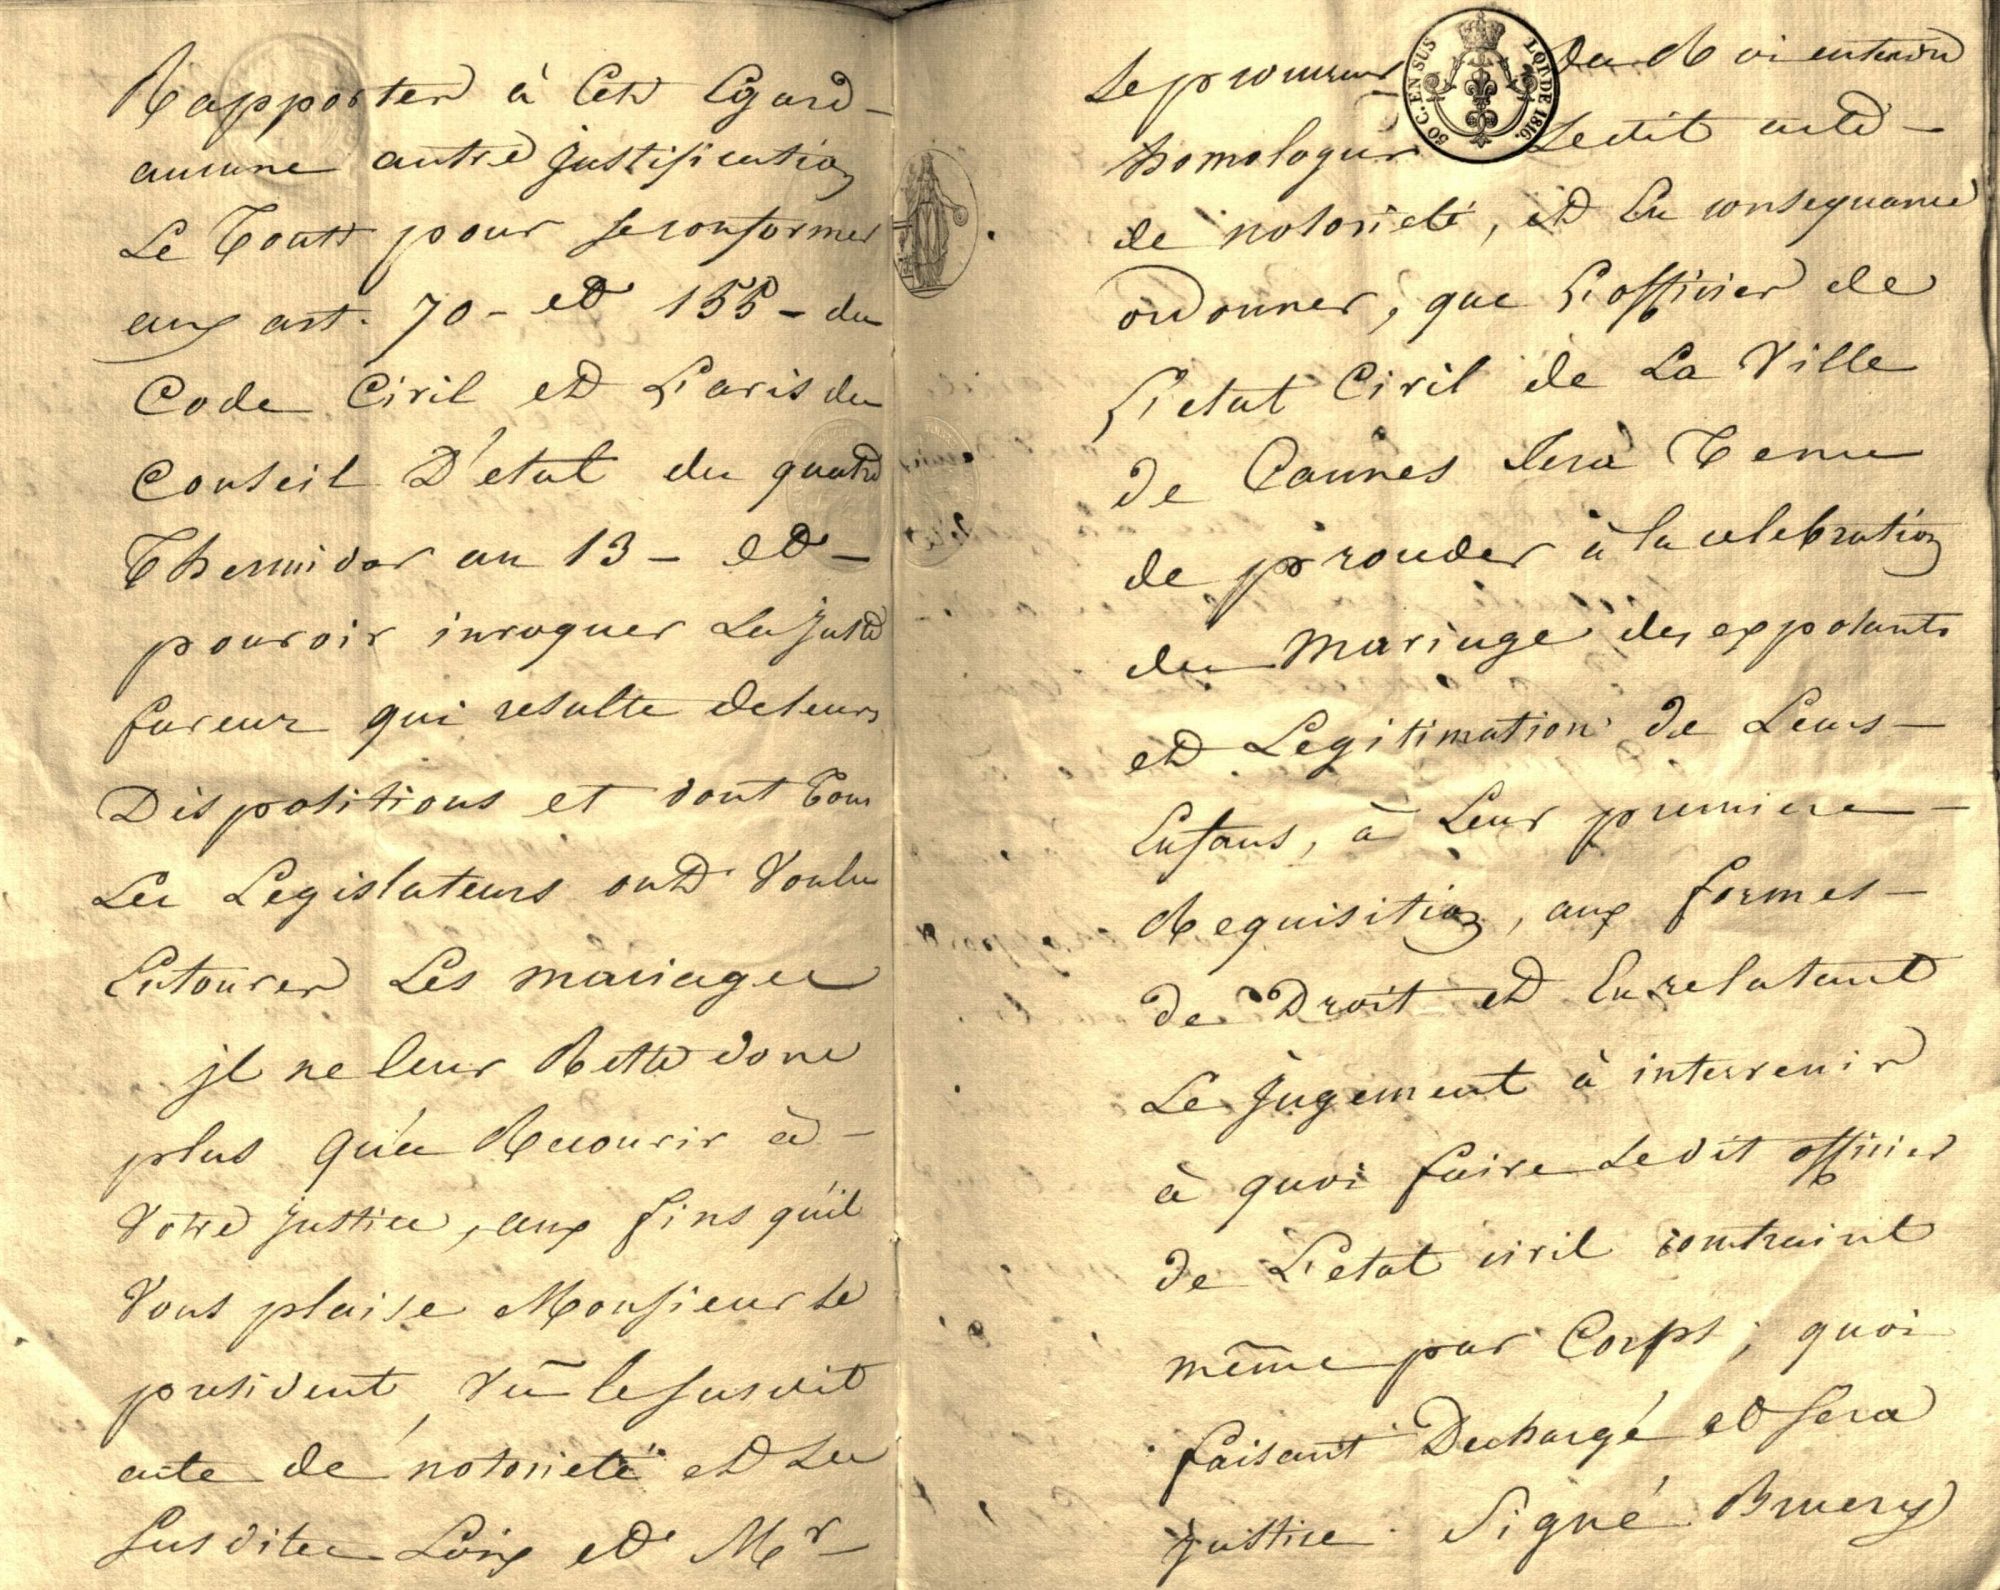 Rapporter à Cet Egard
aucune autre Justification
Le Tout pour se conformer
aux art. 70 - et 155 - du
Code Civil et L'avis du
Conseil D'etat du quatre
Thermidor an 13 - et -
pouvoir invoquer La Juste
faveur qui resulte de leurs
Dispositions et dont
Les Legislateurs ont Voulu
Entourer Les mariages
jl ne leur Reste donc
plus qu'a Recourir à -
Votre Justice, aux fins qu'il
Vous plaise Monsieur le
president, Vû le susdit
acte de notorieté et Les
Susdites Loix et Mr
Le procureur du Roi entendu
homologuer Ledit acte -
de notorieté, et En consequance
ordonner, que L'officier de
L'etat Civil de La Ville
de Cannes Sera Tenu
de proceder à la celebration
du Mariage des exposants
et Legitimation de Leurs -
Enfans, à Leur premiere -
Requisition, aux formes -
de Droit et En relatant
Le Jugement à intervenir
à quoi faire Ledit officier
de L'etat civil contraint
même par Corps; quoi
faisant Dechargé et sera
Justice. Signé Bruery
50 C. EN SUS
LOI DE 1816.